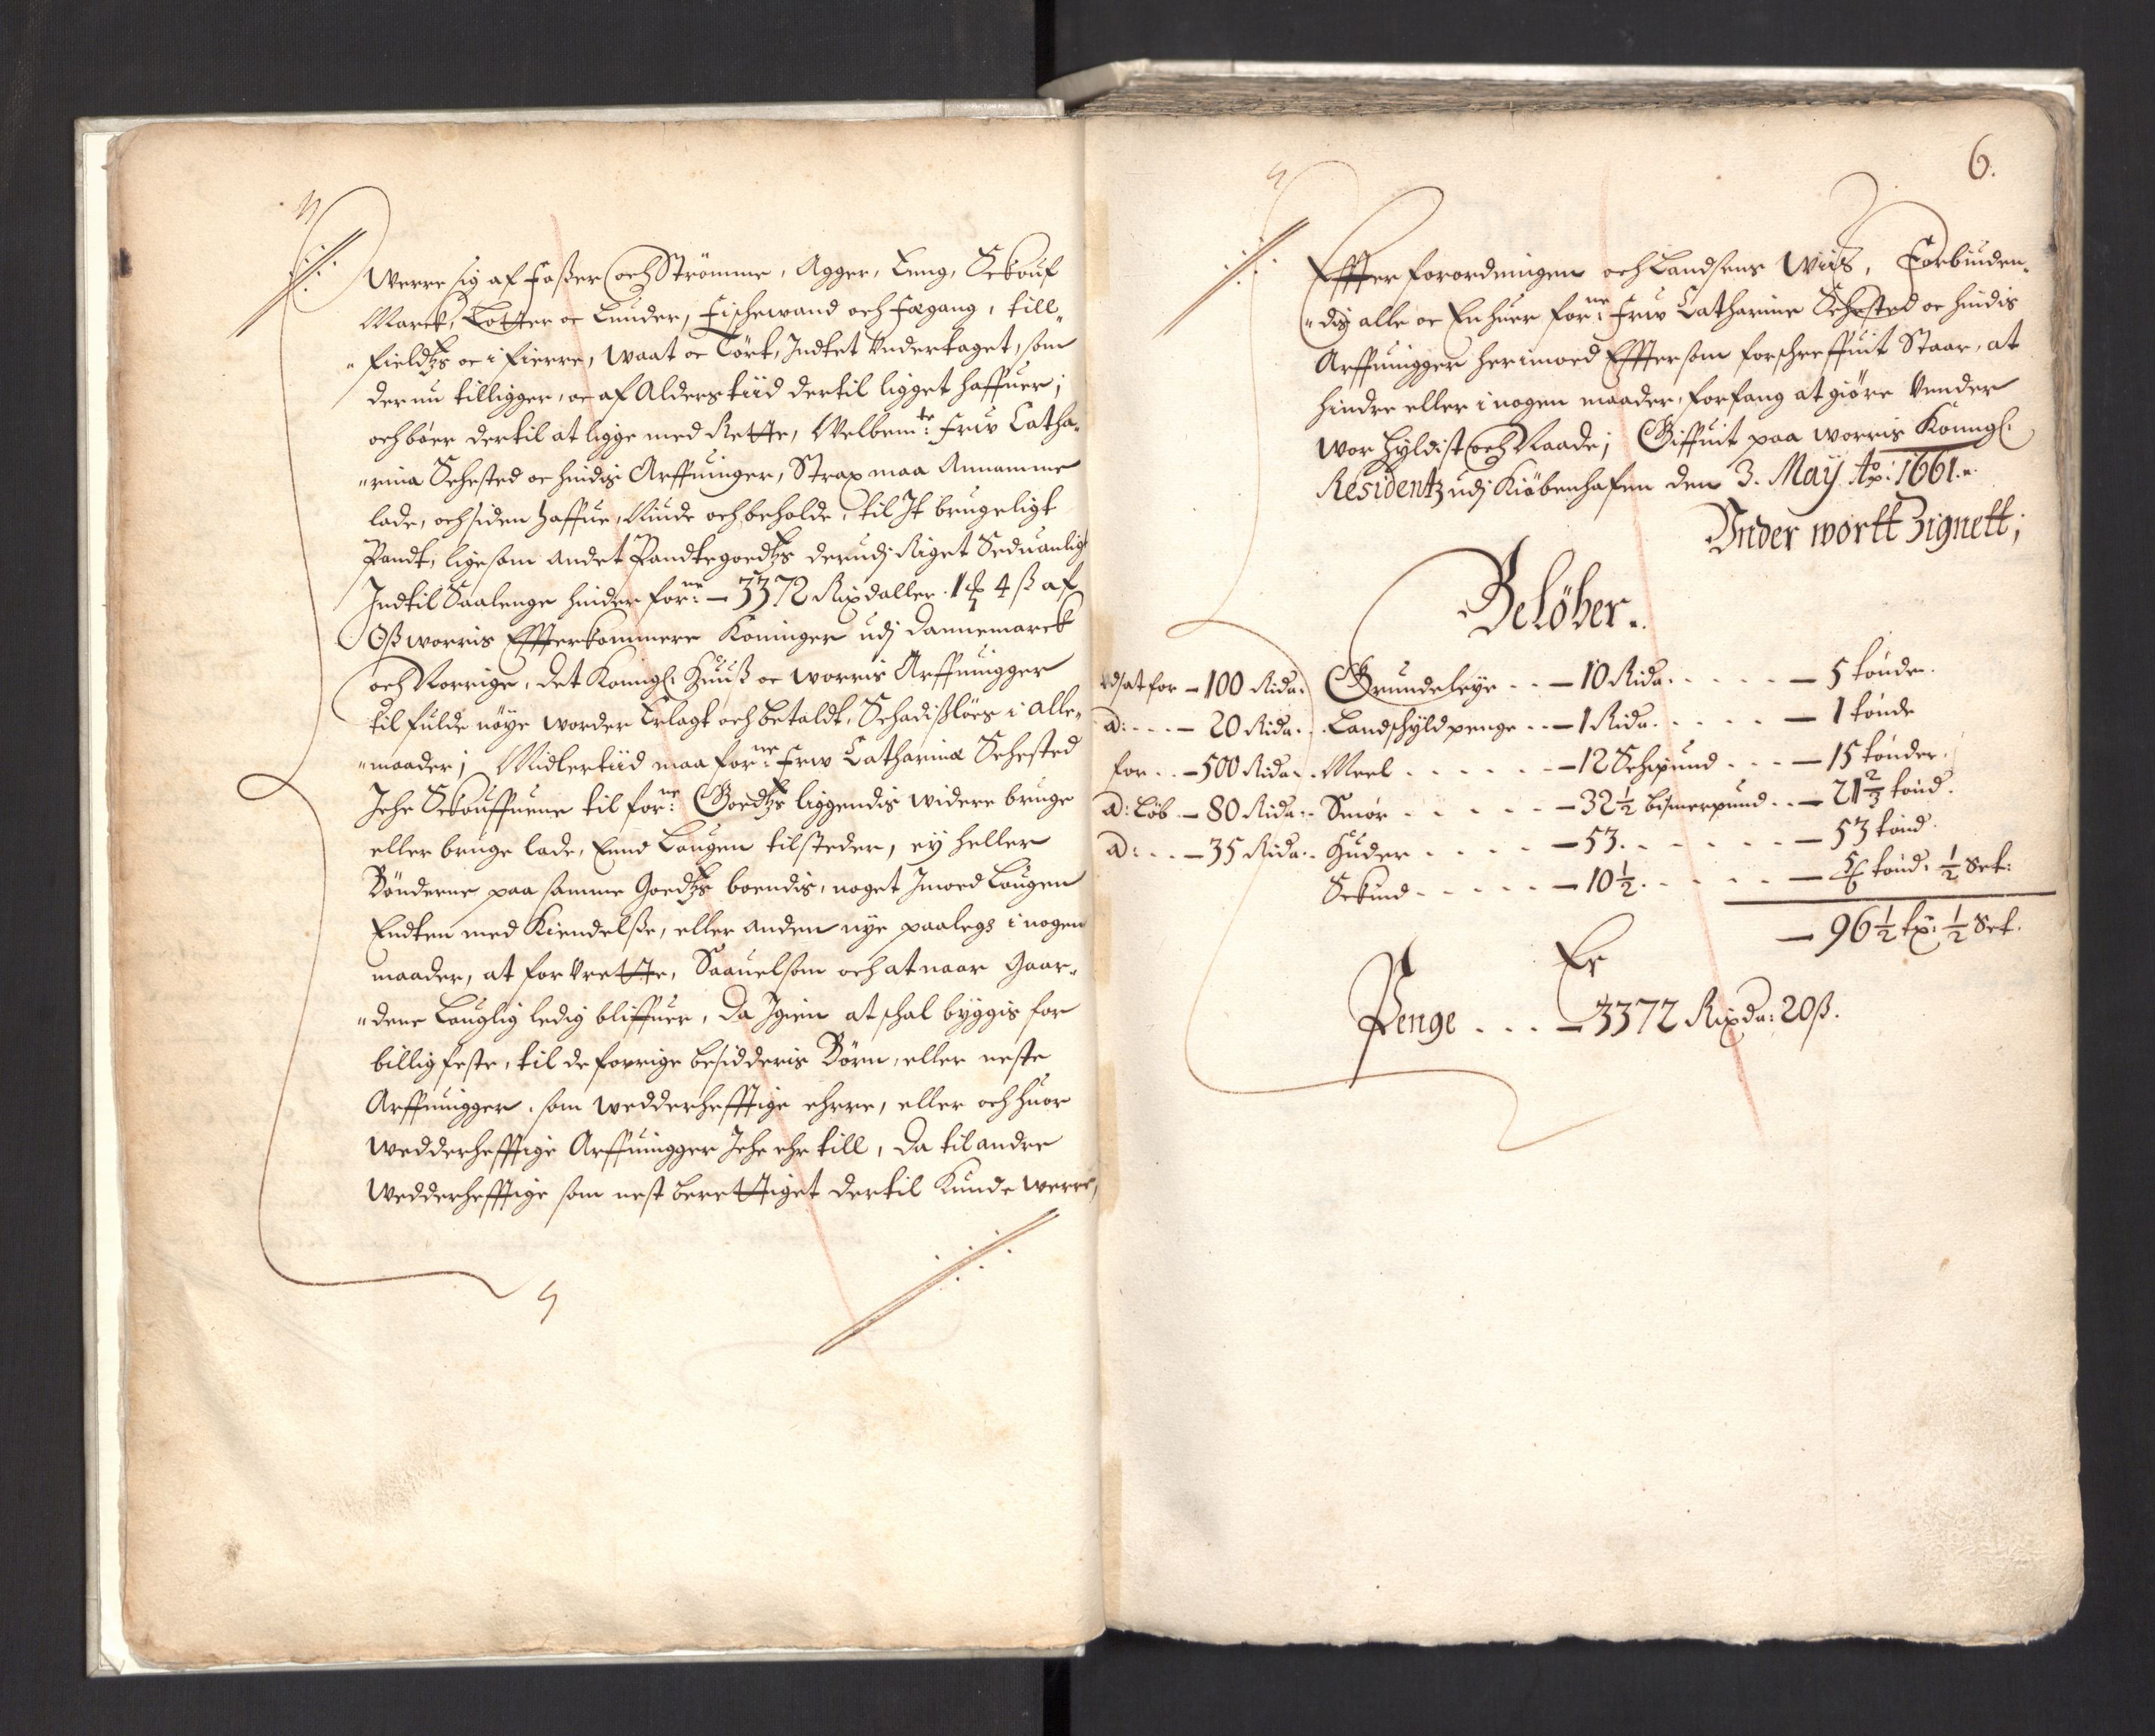 Werre sig af Foßer och Strömme, Agger, Eng, Schouf
Marck, Lotter oc Lunder, Fischewand och Fægang, till
fieldtzs oc i fierre, waat oc Tört, Indtet Undertaget, som
der nu tilligger, oc af Alderstiid dertil ligget haffuer;
och bör dertil at ligge med Rette, Welbemte: Frw Catha-
rina Sehested oc hindis Arffuinger, Strax maa Annamme
lade, och siden haffue, Niude och beholde, til It brugeligt
Pandt, ligesom andet Pandtegoedtzs derudj Riget Seduanligt
Indtil Saalenge hinder forne: - 3372 Rixdaller 1 4 ß af
Oß worris Effterkommere Koninger udj Dannemarck
och Norrige, det Kongl: Huuß oc worris Arffuingger
til fulde nöye worder Erlagt och betaldt, Schadißlöes i alle
maader; Midlertiid maa forne: Frw Catharina Sehested
Iche Schouffuene til forne: Goedtzs liggendis widere bruge
eller bruge lade, End Lougen tilsteder, ey heller
Bönderne paa samme Goedtzs boendis, noget Imoed Lougen
Endten med Kiendelße, eller anden nye paalegs i nogen
maader, at forUrette, Saauelsom och at naar Gaar-
dene Louglig ledig bliffuer, Da Igien at schal byggis for
billig feste, til de forrige besidderis Börn, eller neste
Arffuingger, som wedderhefftige ehre, eller och huor
wedderhefftige Arffuingger Iche ehr till, Da til andre
Wedderhefftige som nest berettiget dertil Kunde werre,
6.
Effter forordningen och Landsens Wiis, Forbiuden-
dis alle oc En huer forne: Frw Catharine Sehested oc hindis
Arffuingger herimoed Efftersom forschreffuit Staar, at
hindre eller i nogen maader, forfang at giöre Vnder
Wor Hyldist och Naade; Giffuit paa worris Konngl:
Residentz udj Kiöbenhafen den 3. May Ao: 1661.
Vnder wortt Zignett;
Belöber.
dsat for - 100 Rixdr: Grundeleye . . - 10 Rixdr. . . . . - 5 tönder.
a: . . . - 20 Rixdr. Landschyldpenge . . - 1 Rixdr. . . . . - 1 tönde
for . . - 500 Rixdr. Meel . . . . . - 12 Schipund . . . - 15 tönder.
a: Löb - 80 Rixdr. Smör . . . . . - 32 1/2 bismerpund . . - 21 2/3 tönd.
a: . . . - 35 Rixdr. Huder . . . . . - 53. . . . . . - 53 tönd.
Schind . . . . . - 10 1/2. . . . . - 5/6 tönd. 1/2 Set:
- 96 1/2 tr: 1/2 Set.
Er
Penge . . . - 3372 Rixdr: 20 ß.